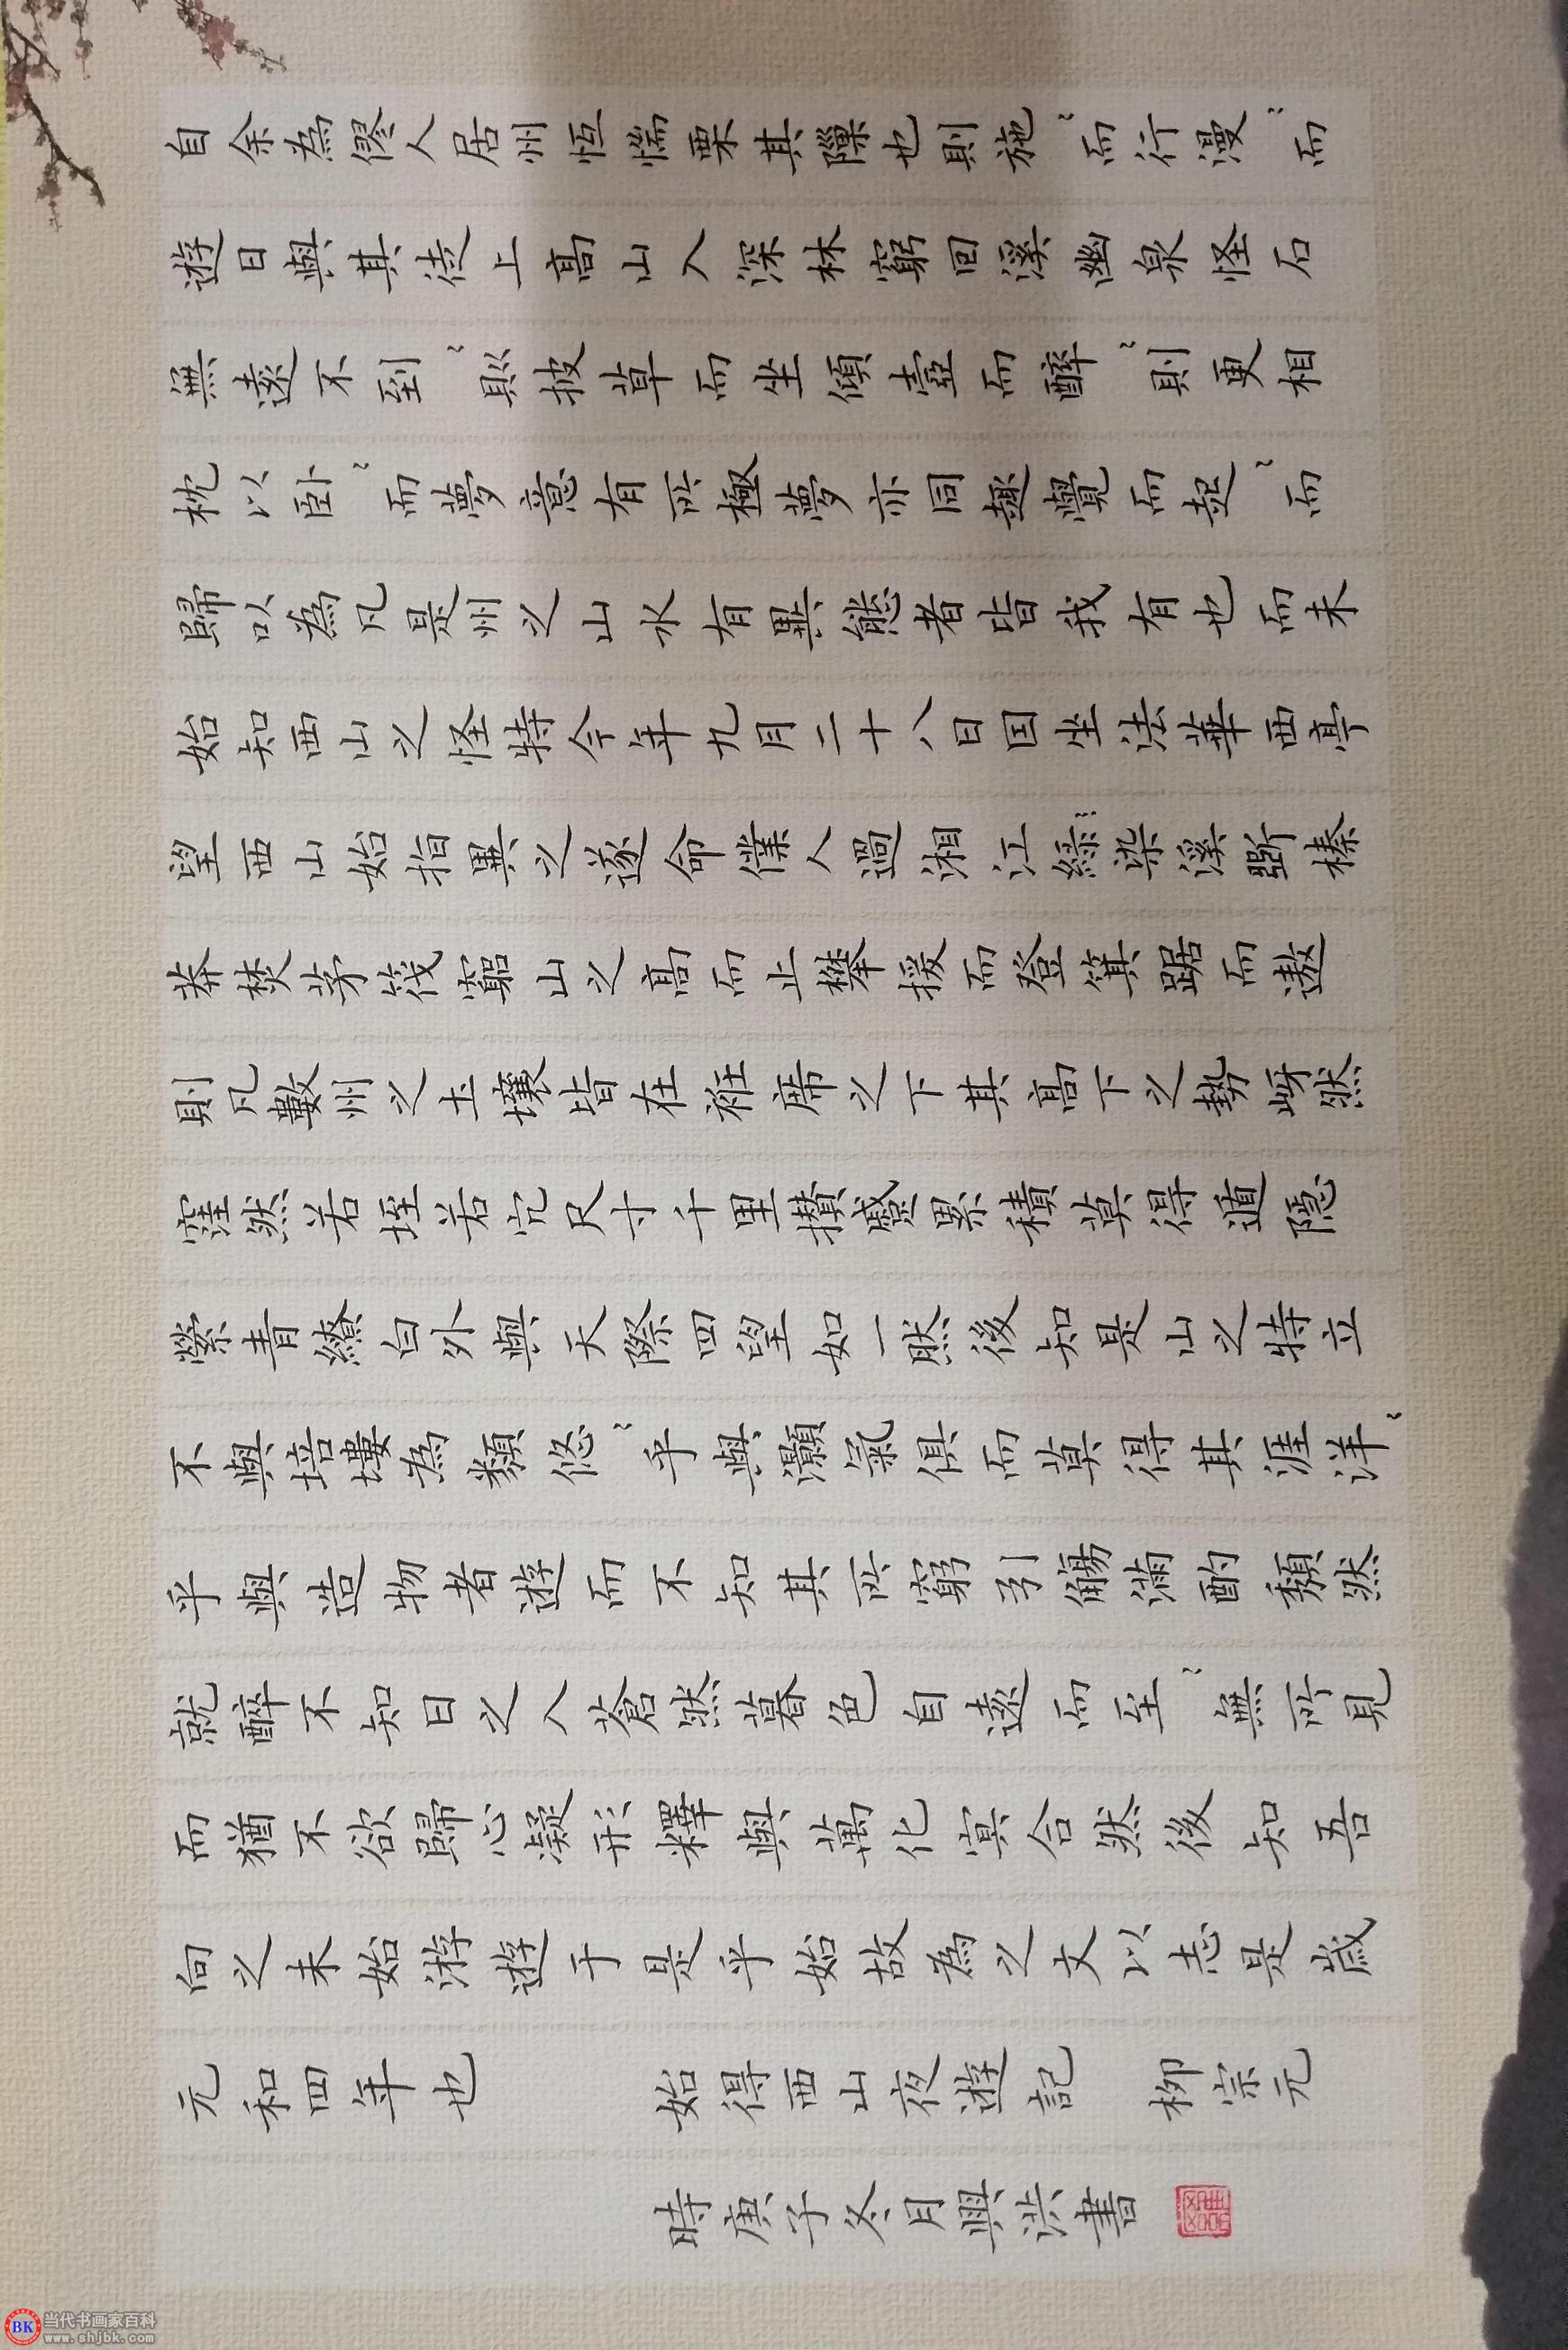 自余為僇人居州恆惴栗其隟也則施〻而行漫〻而
遊日與其徒上高山入深林窮回溪幽泉怪石
無遠不到〻則披草而坐傾壺而醉〻則更相
枕以卧〻而夢意有所極夢亦同趣覺而起〻而
歸以為凡是州之山水有異態者皆我有也而未
始知西山之怪特今年九月二十八日因坐法華西亭
望西山始指異之遂命僕人過湘江緣染溪斮榛
莽焚茅筏窮山之高而止攀援而登箕踞而遨
則凡數州之土壤皆在袵席之下其高下之勢岈然
窪然若垤若穴尺寸千里攢蹙累積莫得遁隱
縈青繚白外與天際四望如一然後知是山之特立
不與培塿為類悠〻乎與灝氣俱而莫得其涯洋〻
乎與造物者遊而不知其所窮引觴滿酌頹然
就醉不知日之入蒼然暮色自遠而至〻無所見
而猶不欲歸心凝形釋與萬化冥合然後知吾
向之未始游遊于是乎始故為之文以志是歲
元和四年也 始得西山夜遊記 柳宗元
時庚子冬月興洪書
BK 当代书画家百科
www.shjbk.com